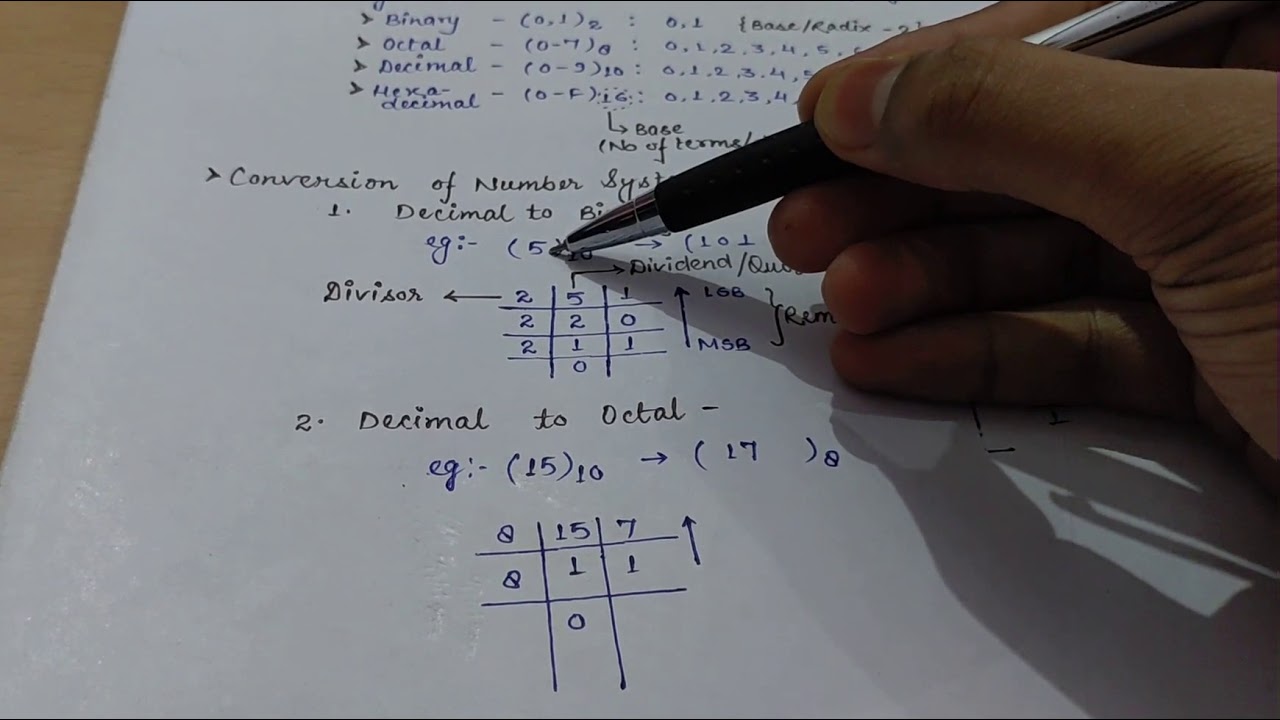 ➤ Binary - (0,1)2 : 0,1 {Base/Radix - 2}
➤ Octal - (0-7)8 : 0,1,2,3,4,5,
➤ Decimal - (0-9)10 : 0,1,2,3,4,
➤ Hexa-decimal - (0-F)16 : 0,1,2,3,4,
↳ Base
(No of terms/
➤ Conversion of Number Syst
1. Decimal to Bi
eg:- (5)10 → (101
→ Dividend/Quo
Divisor ← 2 | 5 | 1 ↑ LSB
2 | 2 | 0 } Rem
2 | 1 | 1 MSB
0
2. Decimal to Octal -
eg:- (15)10 → (17 )8
8 | 15 | 7 ↑
8 | 1 | 1
0
1